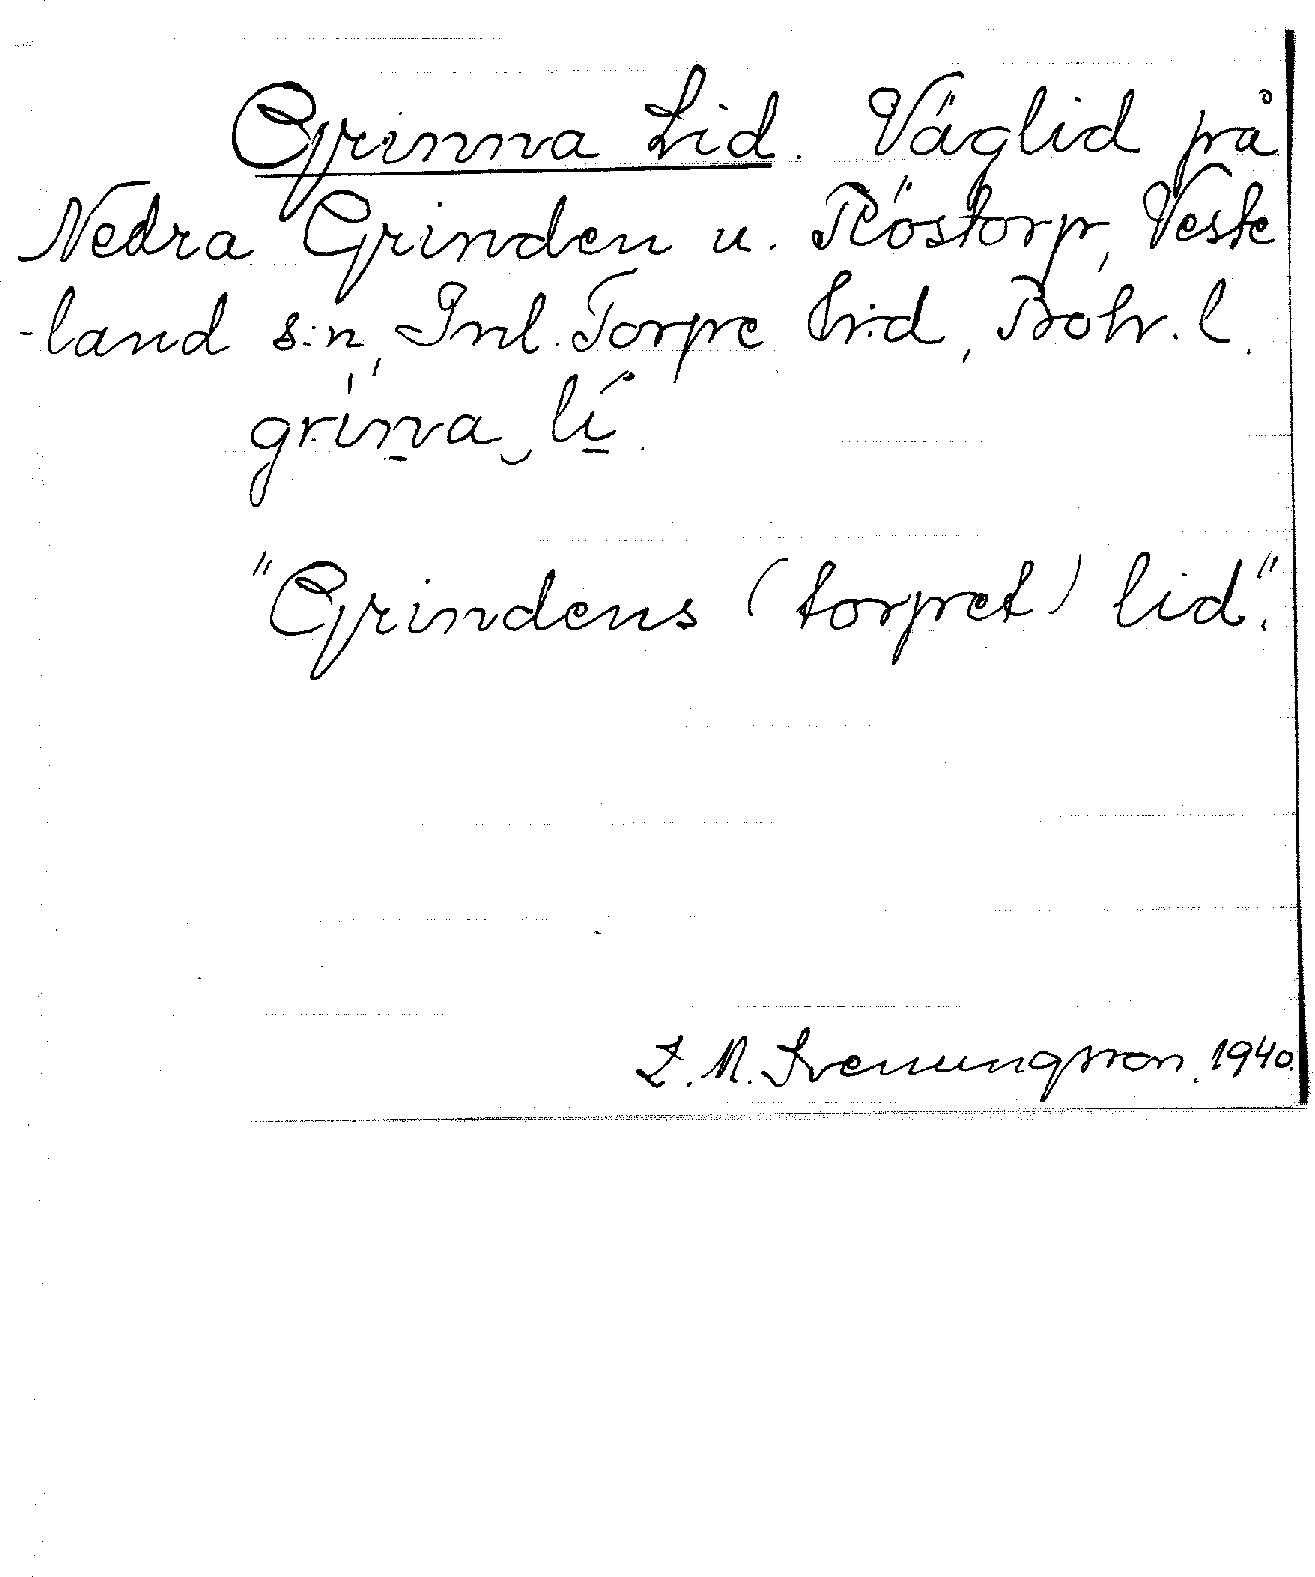 Grinna Lid. Väglid på
Nedra Grinden u. Röstorp, Veste
-land s:n, Inl. Torpe Hrd, Boh. l.
grinna lí.
"Grindens (torpet) lid".
L. M. Svenungsson. 1940.